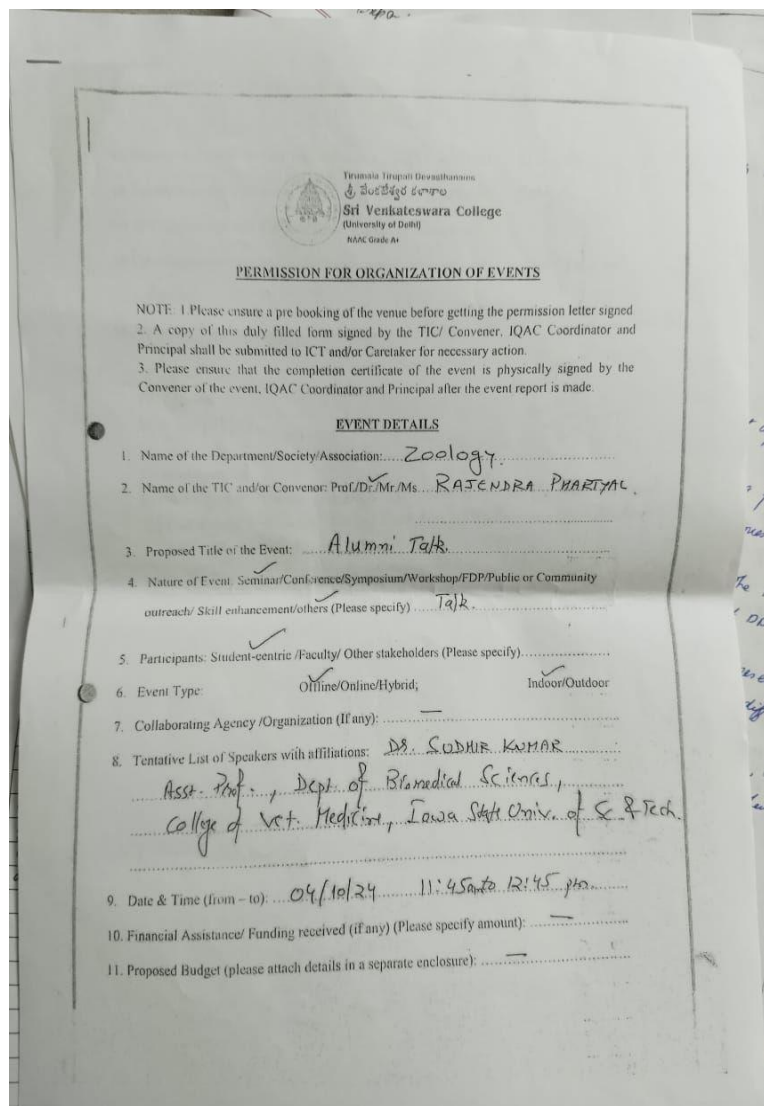 Tirumala Tirupati Devasthanams
శ్రీ వేంకటేశ్వర కళాశాల
Sri Venkateswara College
(University of Delhi)
NAAC Grade A+
PERMISSION FOR ORGANIZATION OF EVENTS
NOTE: 1.Please ensure a pre booking of the venue before getting the permission letter signed
2. A copy of this duly filled form signed by the TIC/ Convener, IQAC Coordinator and
Principal shall be submitted to ICT and/or Caretaker for necessary action.
3. Please ensure that the completion certificate of the event is physically signed by the
Convener of the event, IQAC Coordinator and Principal after the event report is made.
EVENT DETAILS
1. Name of the Department/Society/Association:..... Zoology.
2. Name of the TIC and/or Convenor: Prof./Dr./Mr./Ms... RAJENDRA PHARTYAL
3. Proposed Title of the Event: ...... Alumni Talk.
4. Nature of Event: Seminar/Conference/Symposium/Workshop/FDP/Public or Community
outreach/ Skill enhancement/others (Please specify) ..... Talk.
5. Participants: Student-centric /Faculty/ Other stakeholders (Please specify).....................
6. Event Type: Offline/Online/Hybrid; Indoor/Outdoor
7. Collaborating Agency /Organization (If any): — 
8. Tentative List of Speakers with affiliations: DR. SUDHIR KUMAR
Asst. Prof., Dept. of Biomedical Sciences,
College of Vet. Medicine, Iowa State Univ. of Sc. & Tech.
9. Date & Time (from – to): ... 04/10/24 11:45am to 12:45 pm.
10. Financial Assistance/ Funding received (if any) (Please specify amount): —
11. Proposed Budget (please attach details in a separate enclosure): —